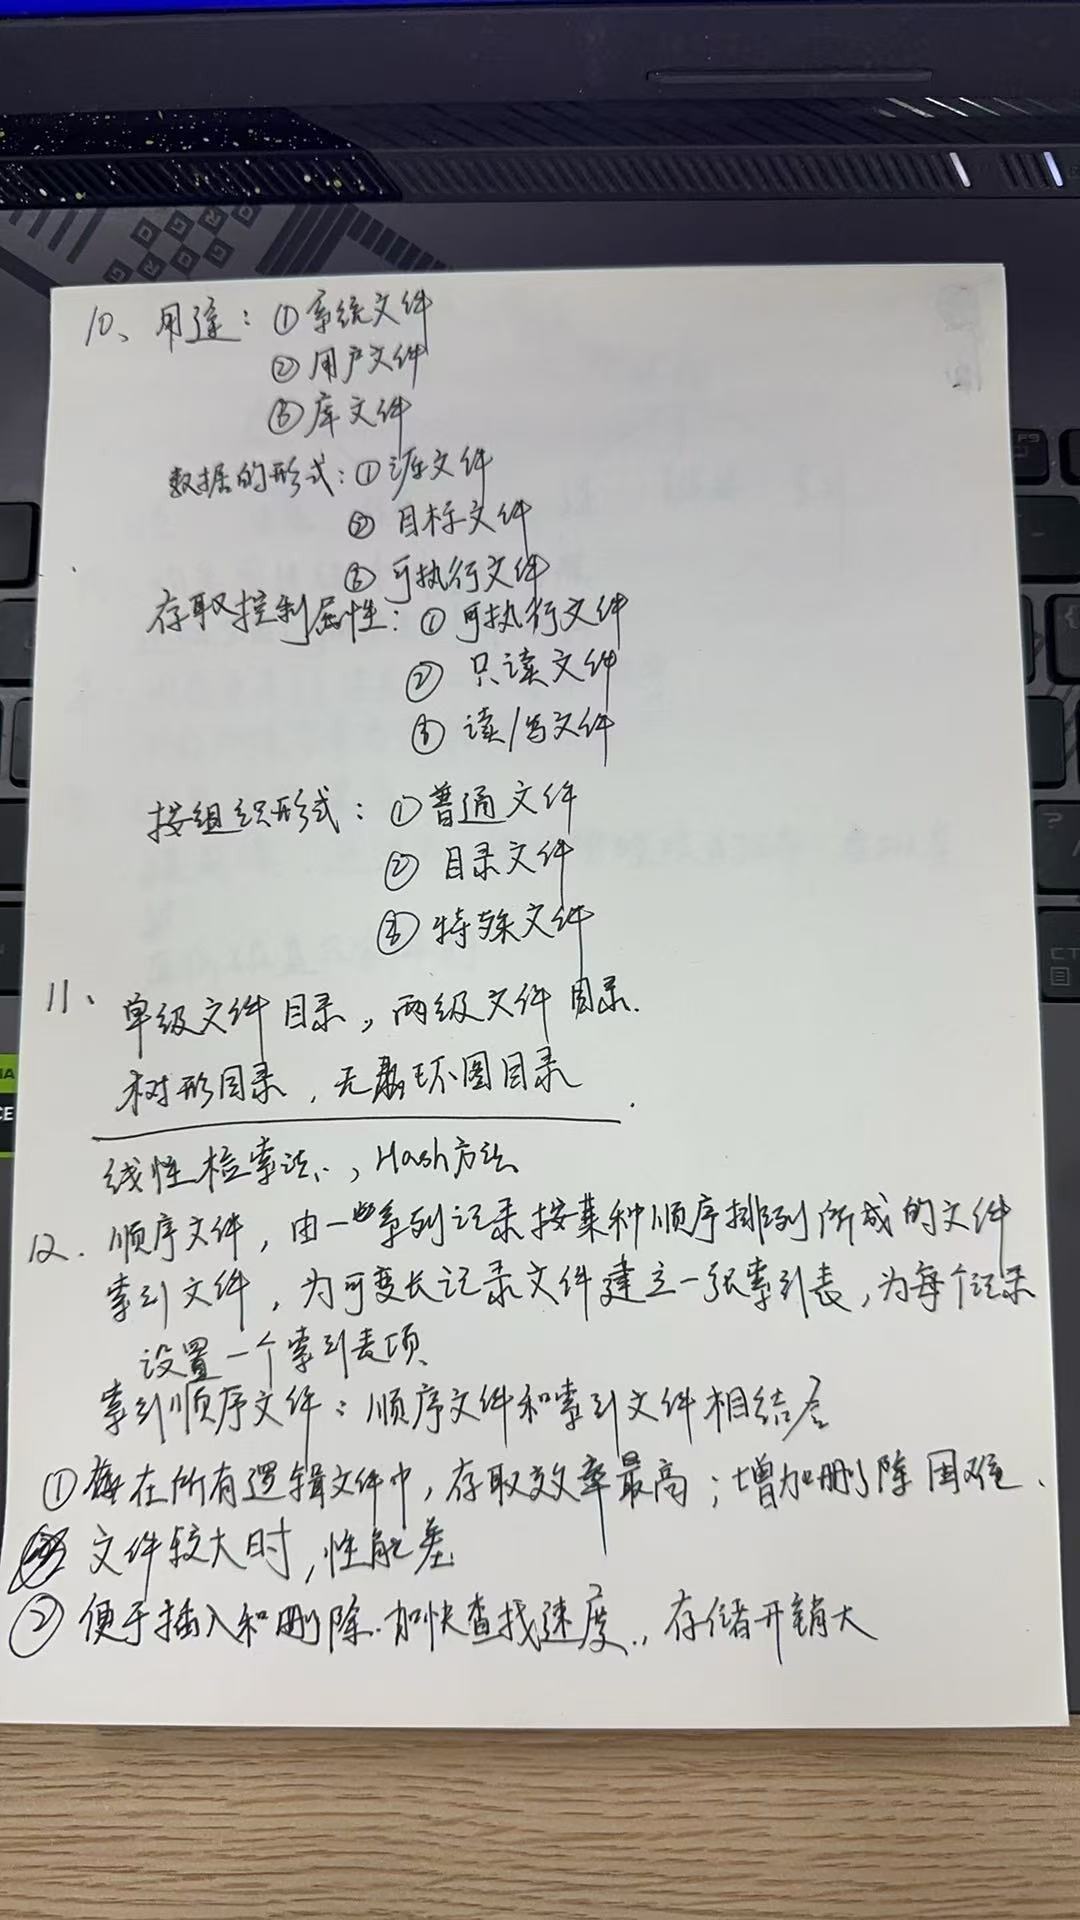 10、用途：①系统文件
②用户文件
③库文件
数据的形式：①源文件
② 目标文件
③ 可执行文件
存取控制属性：① 可执行文件
② 只读文件
③ 读/写文件
按组织形式：①普通文件
② 目录文件
③ 特殊文件
11、单级文件目录，两级文件目录.
树形目录，无环图目录.
线性检索法，Hash方法
12. 顺序文件，由一些系列记录按某种顺序排列所成的文件
索引文件，为可变长记录文件建立一张索引表，为每个记录
设置一个索引表项
索引顺序文件：顺序文件和索引文件相结合
①在所有逻辑文件中，存取效率最高；增加删除困难.
文件较大时，性能差
② 便于插入和删除.加快查找速度.，存储开销大
F9
?
CT